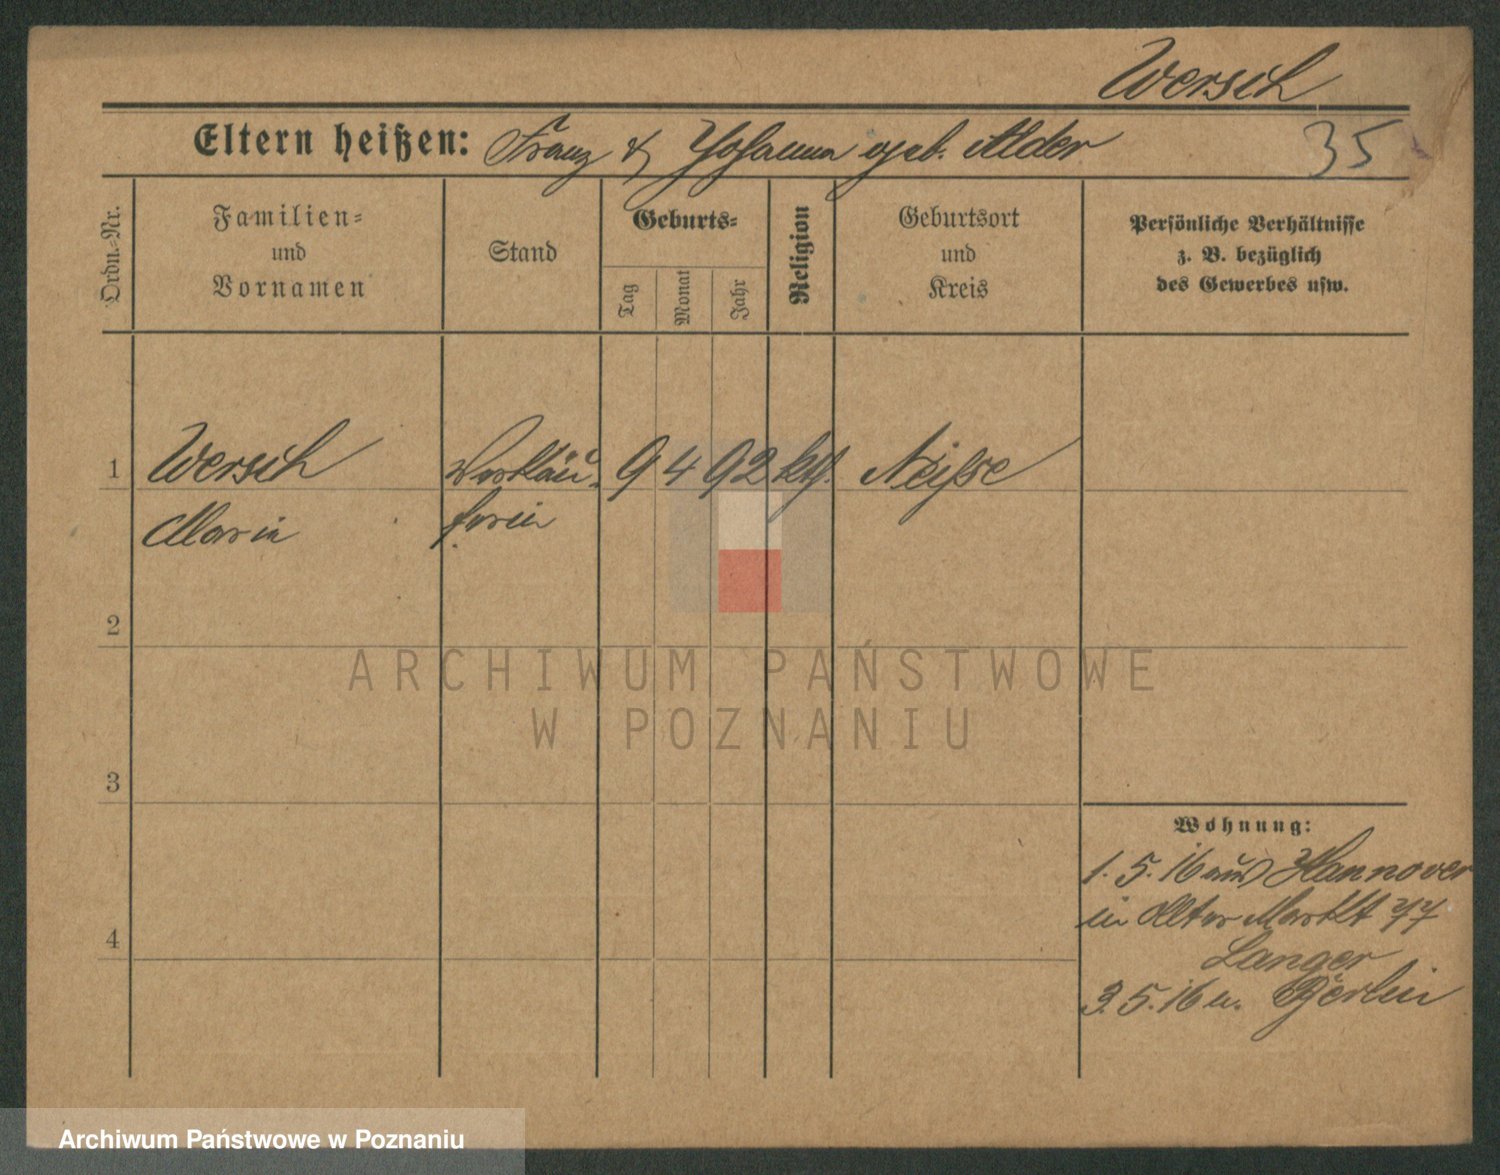 Wersch
Eltern heißen: Franz & Johanna geb. Alder
35
Ordn.-Nr.
Familien-
und
Vornamen
Stand
Geburts-
Tag
Monat
Jahr
Religion
Geburtsort
und
Kreis
Persönliche Verhältnisse
z. B. bezüglich
des Gewerbes usw.
1
Wersch
Verkäu-
9
4
92
kth.
Neisse
Maria
ferin
2
ARCHIWUM PAŃSTWOWE
W POZNANIU
3
Wohnung:
1. 5. 16 aus Hannover
in Alter Markt 77
4
Langer
3. 5. 16 n. Berlin
Archiwum Państwowe w Poznaniu